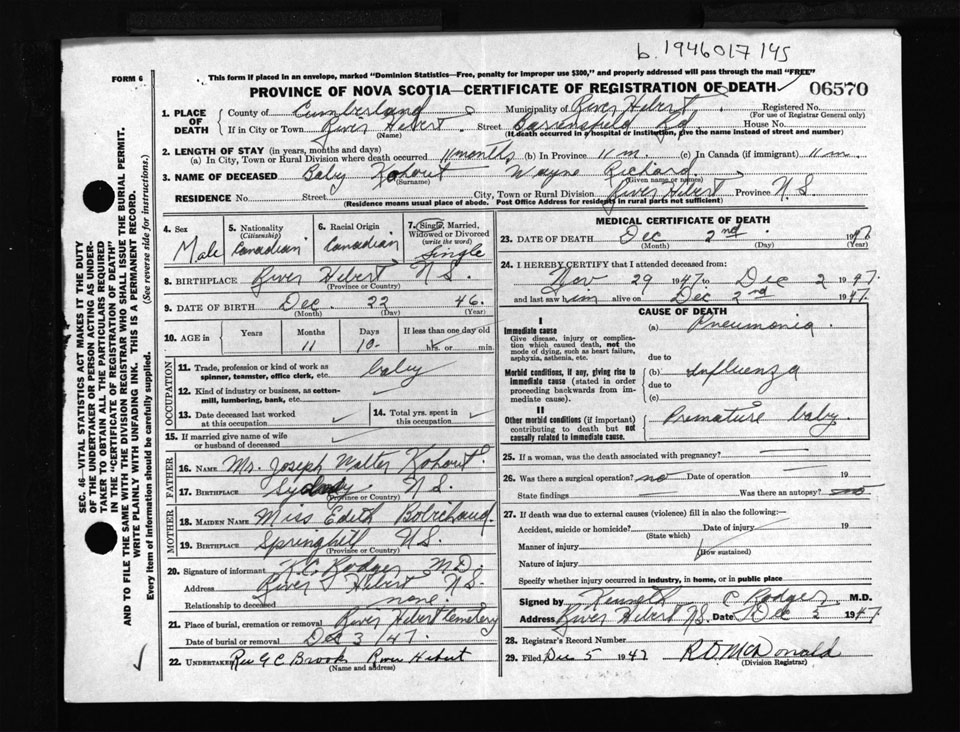 b. 1946 017 145
This form if placed in an envelope, marked "Dominion Statistics—Free, penalty for improper use $300," and properly addressed will pass through the mail "FREE"
FORM 6
PROVINCE OF NOVA SCOTIA—CERTIFICATE OF REGISTRATION OF DEATH 06570
1. PLACE OF DEATH
County of Cumberland Municipality of River Hebert Registered No.
(For use of Registrar General only)
If in City or Town River Hebert Street Barronsfield Rd House No.
(Name) (If death occurred in a hospital or institution, give the name instead of street and number)
2. LENGTH OF STAY (in years, months and days)
(a) In City, Town or Rural Division where death occurred 11 months (b) In Province 11 m. (c) In Canada (if immigrant) 11 m.
3. NAME OF DECEASED Baby Kohout Wayne Richard
(Surname) (Given name or names)
RESIDENCE No. Street City, Town or Rural Division River Hebert Province N.S.
(Residence means usual place of abode. Post Office Address for residents in rural parts not sufficient)
4. Sex
Male
5. Nationality
(Citizenship)
Canadian
6. Racial Origin
Canadian
7. Single, Married,
Widowed or Divorced
(write the word)
Single
8. BIRTHPLACE River Hebert N.S.
(Province or Country)
9. DATE OF BIRTH Dec. 22 46.
(Month) (Day) (Year)
10. AGE in Years Months Days If less than one day old
11 10. hrs. or min.
OCCUPATION
11. Trade, profession or kind of work as
spinner, teamster, office clerk, etc. baby
12. Kind of industry or business, as cotton-
mill, lumbering, bank, etc.
13. Date deceased last worked
at this occupation
14. Total yrs. spent in
this occupation
15. If married give name of wife
or husband of deceased
FATHER
16. NAME Mr. Joseph Walter Kohout
17. BIRTHPLACE Sydney N.S.
(Province or Country)
MOTHER
18. MAIDEN NAME Miss Edith
19. BIRTHPLACE Springhill N.S.
(Province or Country)
20. Signature of informant K C Rodger M.D.
Address River Hebert N.S.
Relationship to deceased none.
21. Place of burial, cremation or removal River Hebert Cemetery
Date of burial or removal Dec 3 /47.
22. UNDERTAKER Rev G C Brook River Hebert
(Name and address)
MEDICAL CERTIFICATE OF DEATH
23. DATE OF DEATH Dec 2nd. 1947.
(Month) (Day) (Year)
24. I HEREBY CERTIFY that I attended deceased from:
Nov 29 1947 to Dec 2 1947.
and last saw him alive on Dec 2nd 1947.
CAUSE OF DEATH
I
Immediate cause
Give disease, injury or complica-
tion which caused death, not the
mode of dying, such as heart failure,
asphyxia, asthenia, etc.
(a) Pneumonia.
due to
Morbid conditions, if any, giving rise to
immediate cause (stated in order
proceeding backwards from im-
mediate cause).
(b) Influenza
due to
(c)
II
Other morbid conditions (if important)
contributing to death but not
causally related to immediate cause.
Premature baby.
25. If a woman, was the death associated with pregnancy?
26. Was there a surgical operation? no Date of operation 19
State findings Was there an autopsy? no
27. If death was due to external causes (violence) fill in also the following:—
Accident, suicide or homicide? Date of injury 19
(State which)
Manner of injury
(How sustained)
Nature of injury
Specify whether injury occurred in industry, in home, or in public place
Signed by Kenneth C Rodger M.D.
Address River Hebert N.S. Date Dec 2 1947
28. Registrar's Record Number
29. Filed Dec 5 1947 R.D. McDonald
(Division Registrar)
SEC. 46—VITAL STATISTICS ACT MAKES IT THE DUTY
OF THE UNDERTAKER OR PERSON ACTING AS UNDER-
TAKER TO OBTAIN ALL THE PARTICULARS REQUIRED
IN THE "CERTIFICATE OF REGISTRATION OF DEATH"
AND TO FILE THE SAME WITH THE DIVISION REGISTRAR WHO SHALL ISSUE THE BURIAL PERMIT.
WRITE PLAINLY WITH UNFADING INK. THIS IS A PERMANENT RECORD.
Every item of information should be carefully supplied. (See reverse side for instructions.)